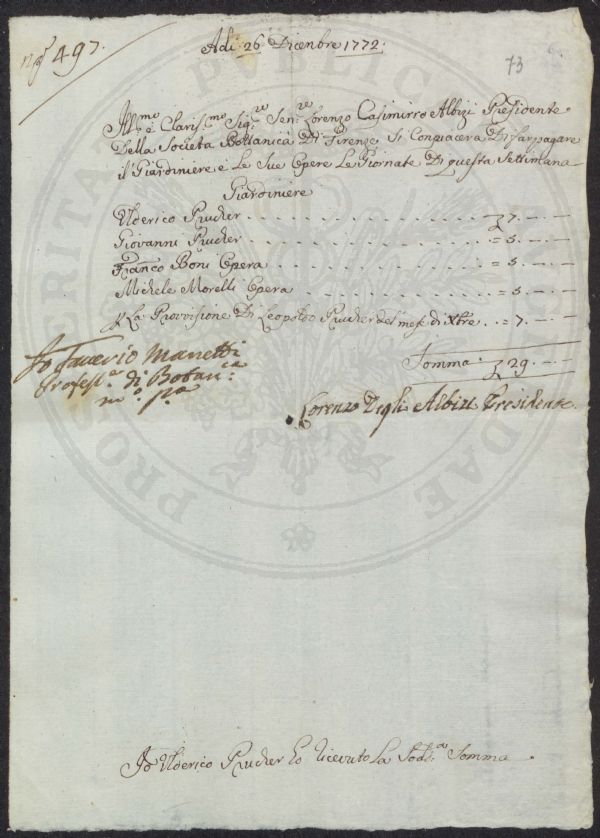 N.º 497
Adi: 26 Dicembre 1772:
73
Ill.mo e Claris.mo Sig.re Sen.re Lorenzo Casimirro Albizi Presidente
Della Società Bottanica Di Firenze Si Conpiacera Di far pagare
il Giardiniere e Le Sue Opere Le Giornate Di questa Settimana
Giardiniere
Ulderico Prucher . . . . . 7 . — . —
Giovanni Prucher . . . . . = 5 . — . —
Franco Boni Opera . . . . . = 5 . — . —
Michele Morelli Opera . . . . . = 5 . — . —
La Provvisione Di Leopoldo Prucher del mese di Xbre . . = 7 . — . —
Somma: 29 . — . —
Io Saverio Manetti
Profess.e di Botan.ca
m.o p.a
Lorenzo Degli Albizi Presidente.
PUBLICAE
PROSPERITATI
Io Ulderico Prucher ho ricevuto La Sod.a Somma.